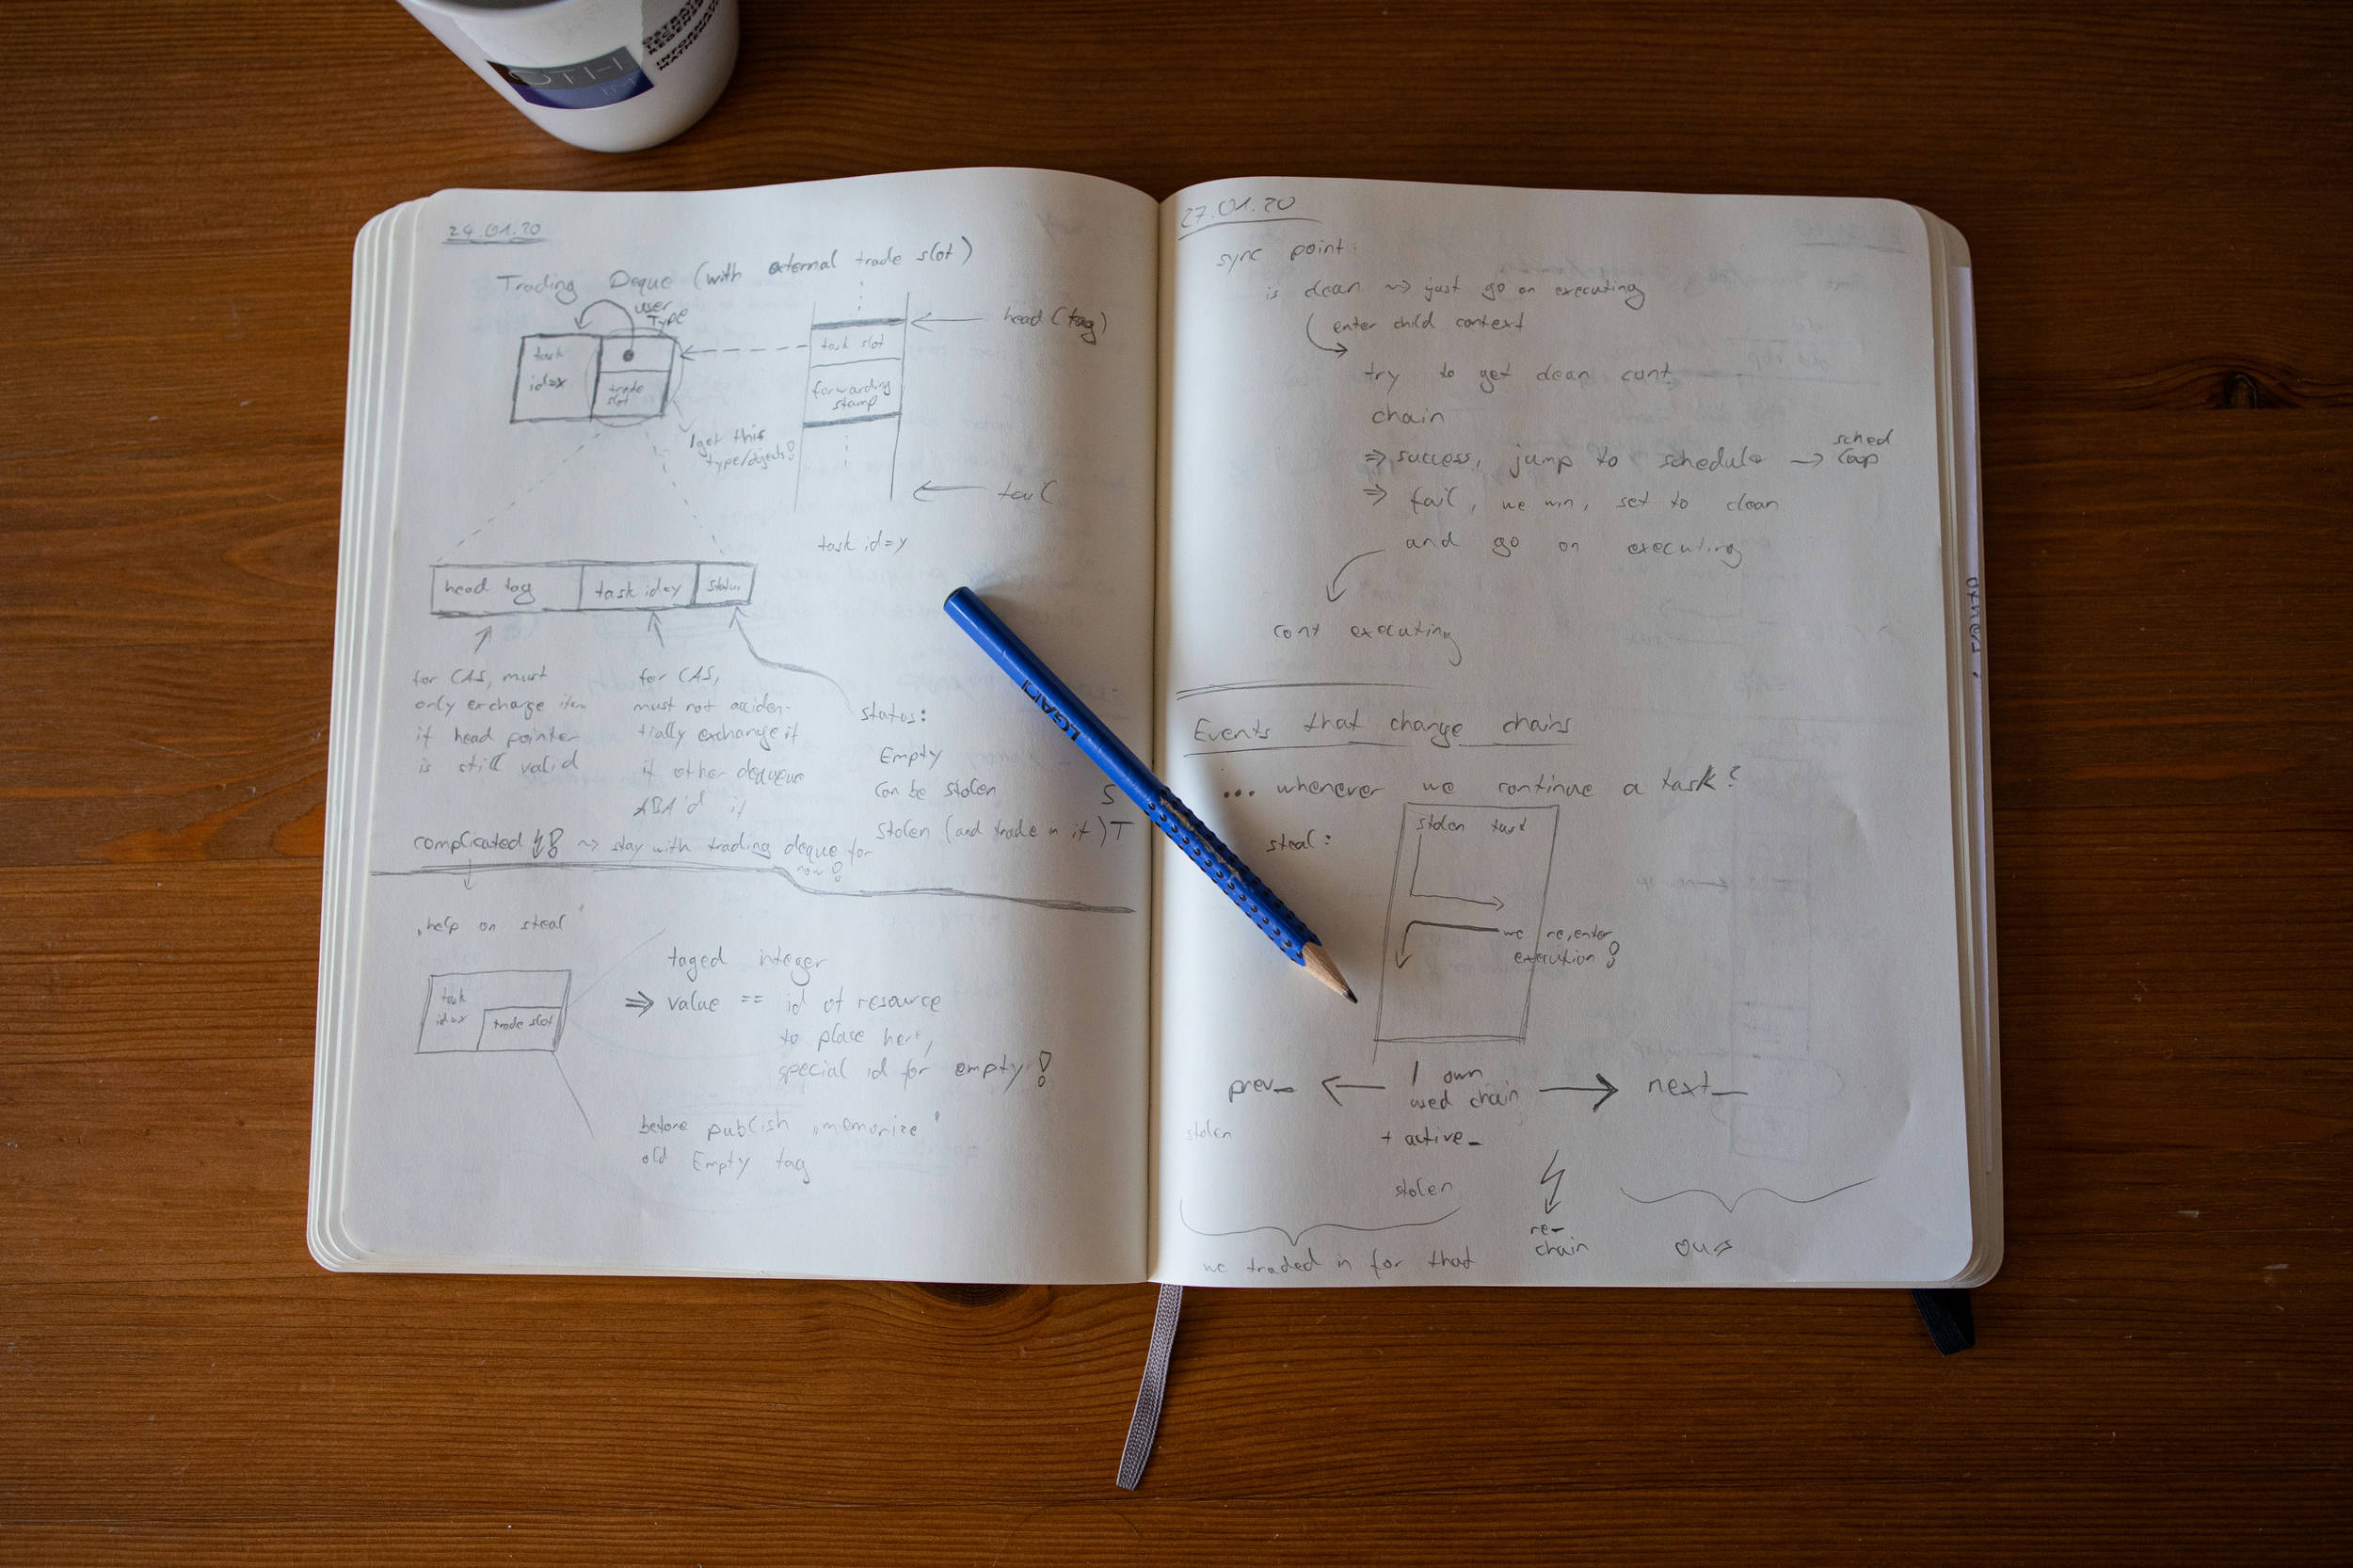 OTH
IM
INFORMATIK
24.01.20
Trading Deque (with external trade slot)
user
Type
task
id=x
trade
slot
I get this
type/objects!
task slot
forwarding
stamp
head (tag)
tail
task id=y
head tag
task id=y
status
for CAS, must
only exchange item
if head pointer
is still valid
for CAS,
must not acciden-
tially exchange it
if other dequeue
ABA'd it
status:
Empty
Can be stolen S
Stolen (and trade in it) T
complicated ! ~> stay with trading deque for
now!
"help on steal"
task
id=x
trade slot
taged integer
=> value == id of resource
to place here,
special id for empty!
before publish "memorize"
old Empty tag
27.01.20
sync point:
is clean ~> just go on executing
enter child context
try to get clean cont
chain
=> success, jump to schedule -> sched
loop
=> fail, we win, set to clean
and go on executing
cont executing
Events that change chains
... whenever we continue a task?
steal:
stolen task
we re-enter
execution!
prev_ <- I own -> next_
used chain
stolen
+ active_
stolen
re-
chain
ours
we traded in for that
LEGAMI